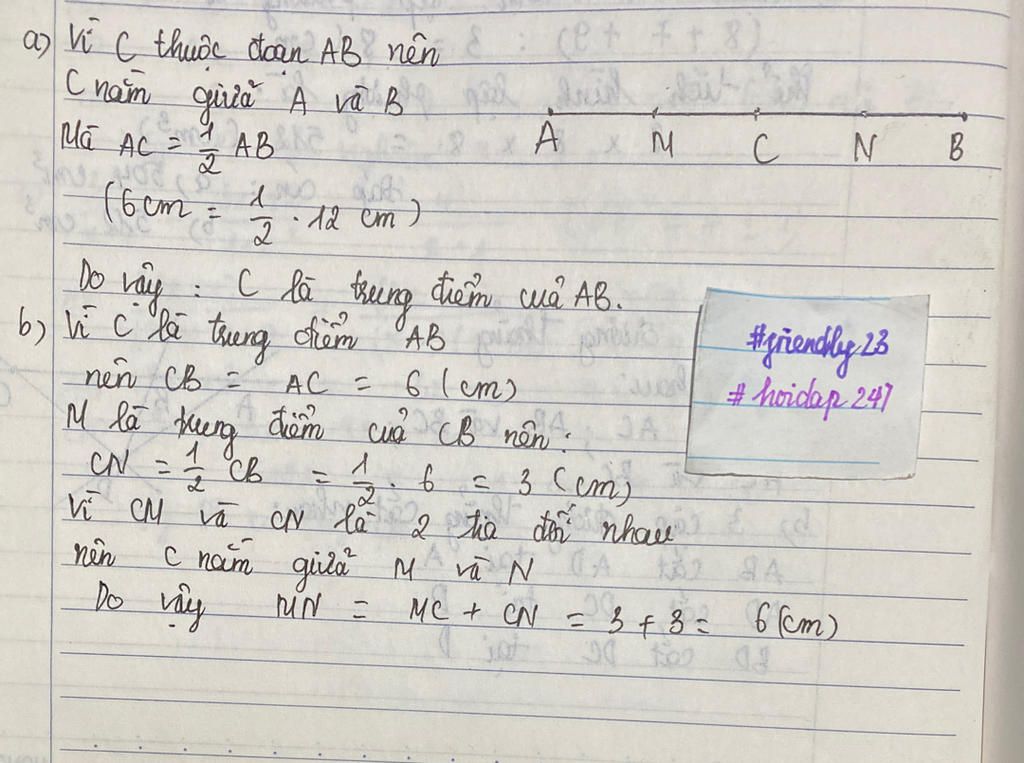 a) Vì C thuộc đoạn AB nên
C nằm giữa A và B
Mà AC = 1/2 AB
(6cm = 1/2 . 12 cm)
A M C N B
Do vậy : C là trung điểm của AB.
b) Vì C là trung điểm AB
nên CB = AC = 6 (cm)
M là trung điểm của CB nên:
CN = 1/2 CB = 1/2 . 6 = 3 (cm)
Vì CM và CN là 2 tia đối nhau
nên C nằm giữa M và N
Do vậy MN = MC + CN = 3 + 3 = 6 (cm)
#friendly23
#hoidap247